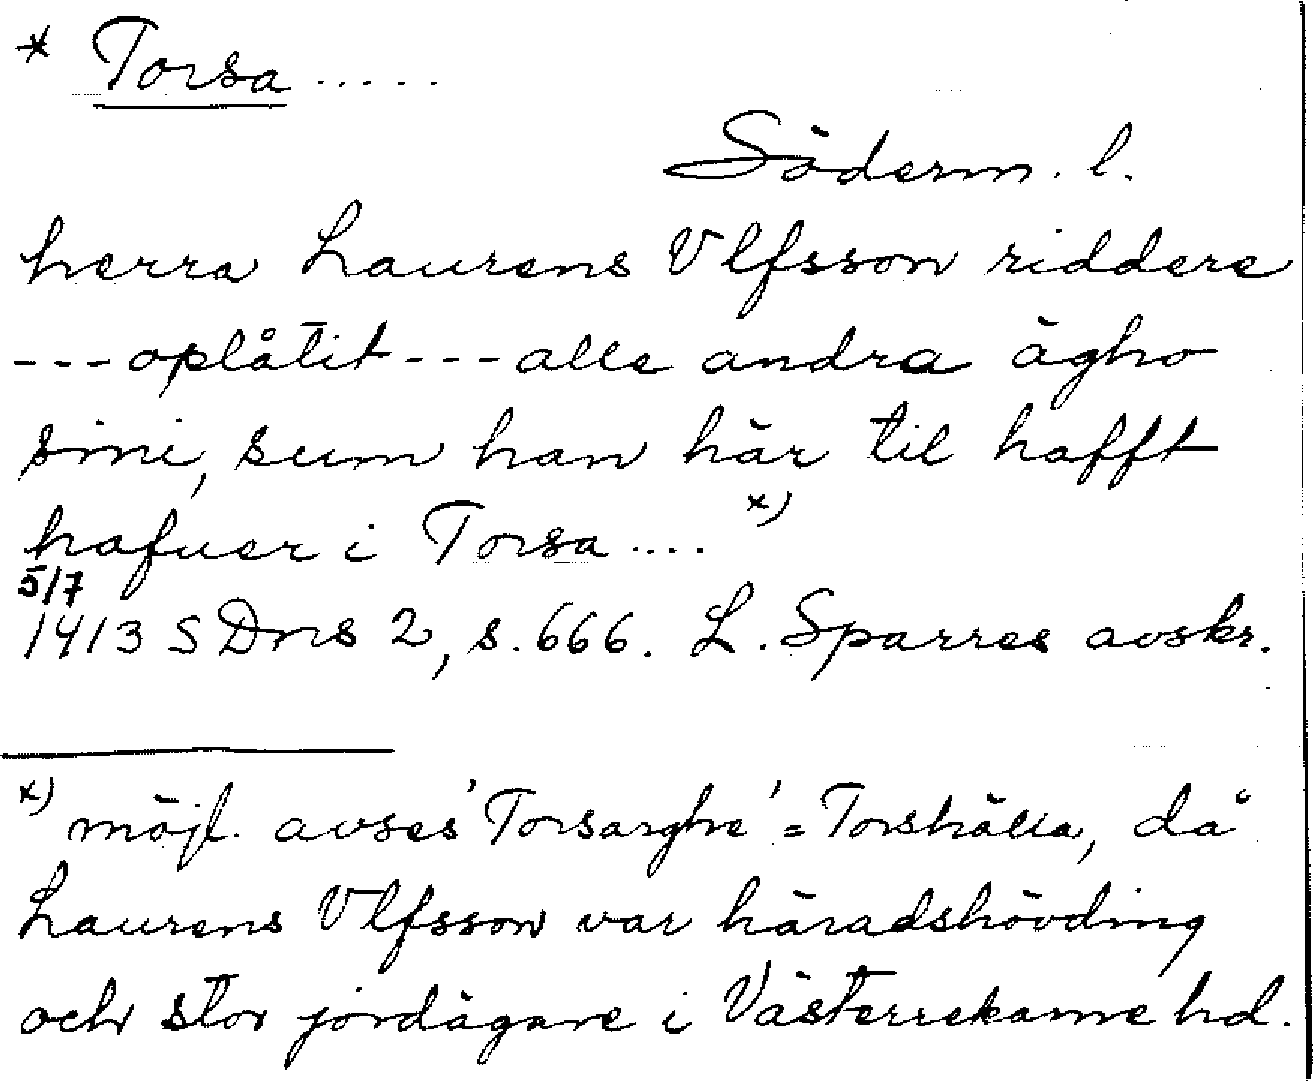 * Torsa .....
Söderm. l.
herra Laurens Ulfsson riddere
---oplåtit---alle andra ägho
sini, sum han här til hafft
hafuer i Torsa .... x)
5/7
1413 SDns 2, s. 666. L. Sparres avskr.
x) möjl. avses 'Torsarghe' = Torshälla, då
Laurens Ulfsson var häradshövding
och stor jordägare i Västerrekarne hd.